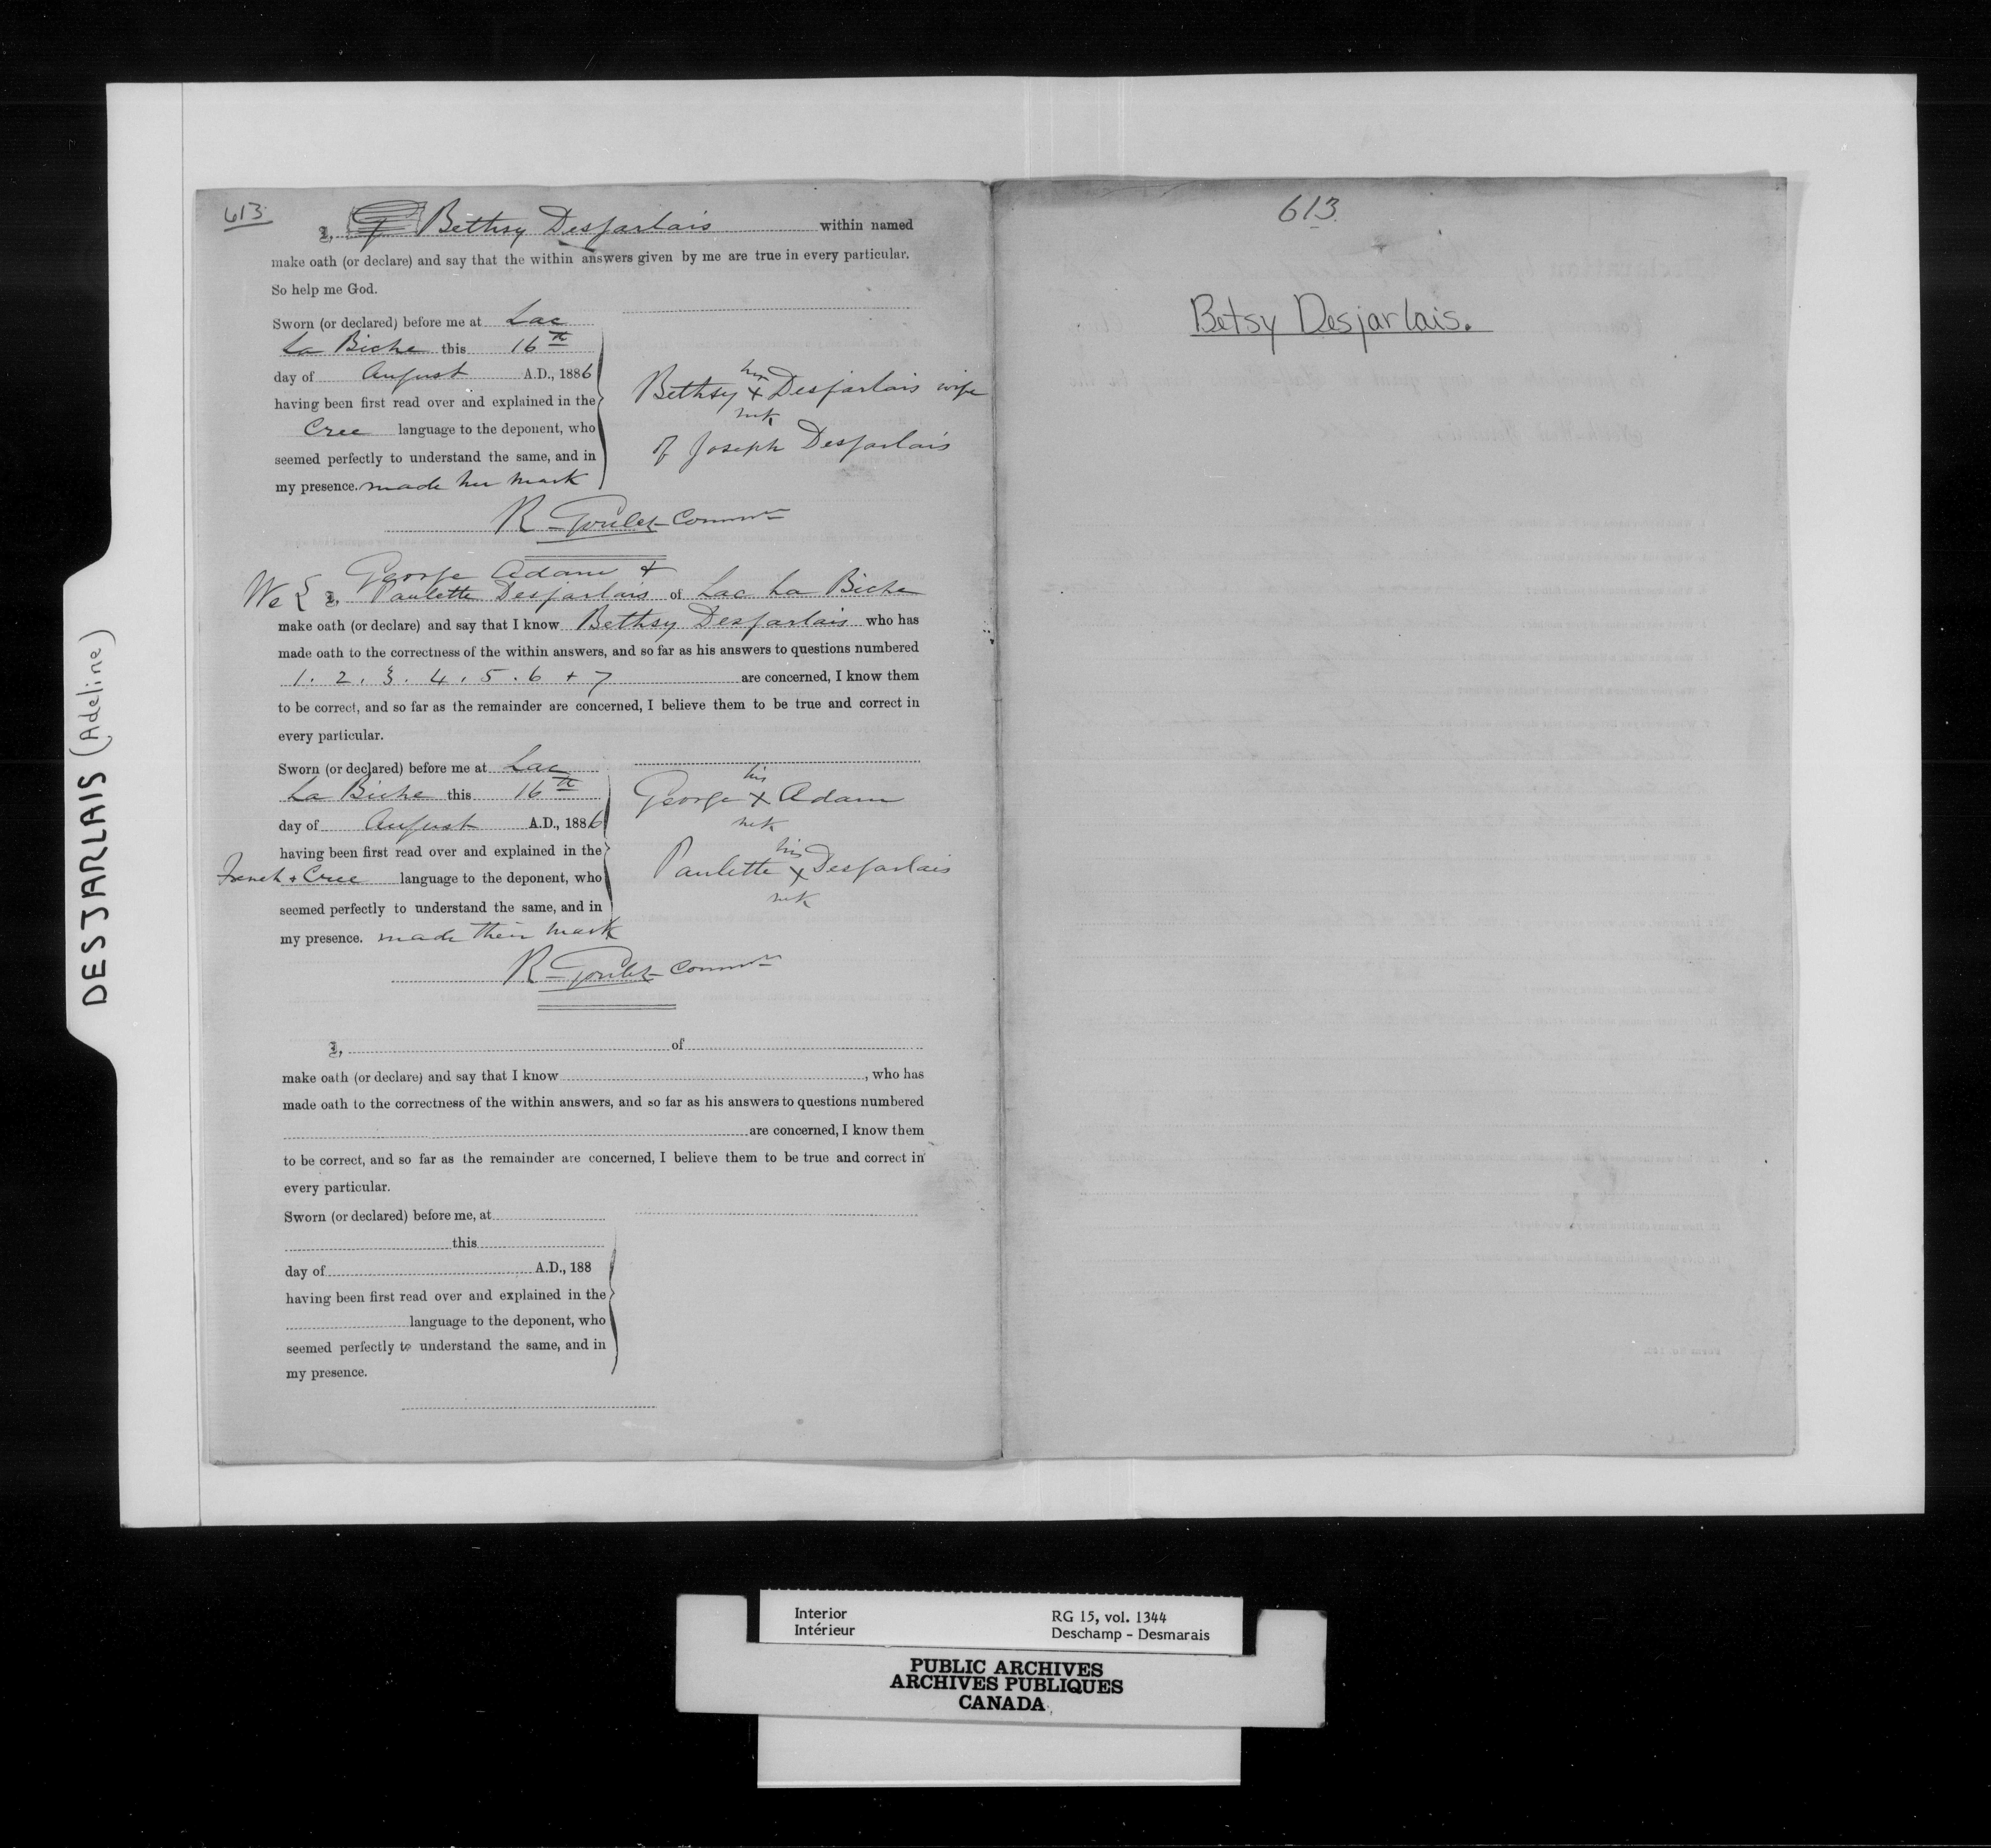 DESJARLAIS (Adeline)
613
I, Bethsy Desjarlais within named
make oath (or declare) and say that the within answers given by me are true in every particular.
So help me God.
Sworn (or declared) before me at Lac
La Biche this 16th
day of August A.D., 1886
having been first read over and explained in the
Cree language to the deponent, who
seemed perfectly to understand the same, and in
my presence. made her mark
her
Bethsy x Desjarlais wife
mk
of Joseph Desjarlais
R Goulet Commr
George Adam +
We { I, Paulette Desjarlais of Lac La Biche
make oath (or declare) and say that I know Bethsy Desjarlais who has
made oath to the correctness of the within answers, and so far as his answers to questions numbered
1. 2. 3. 4. 5. 6 + 7 are concerned, I know them
to be correct, and so far as the remainder are concerned, I believe them to be true and correct in
every particular.
Sworn (or declared) before me at Lac
La Biche this 16th
day of August A.D., 1886
having been first read over and explained in the
French + Cree language to the deponent, who
seemed perfectly to understand the same, and in
my presence. made their mark
his
George x Adam
mk
his
Paulette x Desjarlais
mk
R Goulet Commr
I, of
make oath (or declare) and say that I know , who has
made oath to the correctness of the within answers, and so far as his answers to questions numbered
are concerned, I know them
to be correct, and so far as the remainder are concerned, I believe them to be true and correct in
every particular.
Sworn (or declared) before me, at
this
day of A.D., 188
having been first read over and explained in the
language to the deponent, who
seemed perfectly to understand the same, and in
my presence.
613
Betsy Desjarlais.
Interior RG 15, vol. 1344
Intérieur Deschamp - Desmarais
PUBLIC ARCHIVES
ARCHIVES PUBLIQUES
CANADA